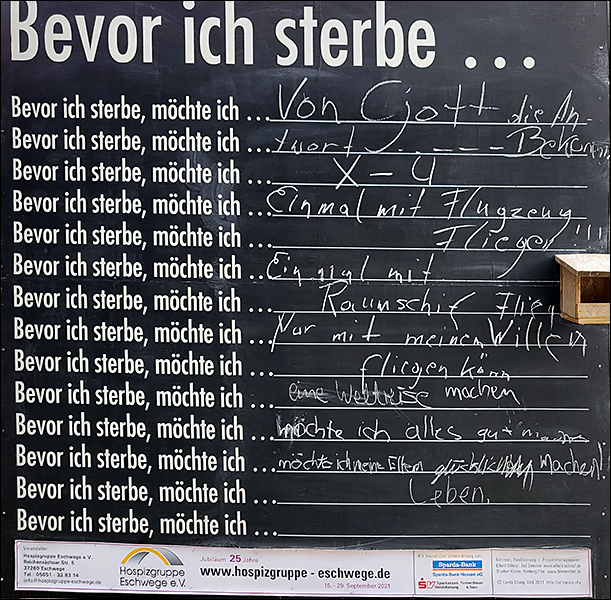 Bevor ich sterbe ...
Bevor ich sterbe, möchte ich ... Von Gott die An
Bevor ich sterbe, möchte ich ... twort ----- Bekomm
Bevor ich sterbe, möchte ich ... X - 4
Bevor ich sterbe, möchte ich ... Einmal mit Flugzeug
Bevor ich sterbe, möchte ich ... Fliegen!!!
Bevor ich sterbe, möchte ich ... Einmal mit
Bevor ich sterbe, möchte ich ... Raumschif Flieg
Bevor ich sterbe, möchte ich ... Nur mit meinen Willen
Bevor ich sterbe, möchte ich ... fliegen könn
Bevor ich sterbe, möchte ich ... eine Weltreise machen
Bevor ich sterbe, möchte ich ... möchte ich alles gut
Bevor ich sterbe, möchte ich ... möchte ich meine Eltern machen!
Bevor ich sterbe, möchte ich ... Leben.
Bevor ich sterbe, möchte ich ...
Veranstalter:
Hospizgruppe Eschwege e.V.
Reichensächser Str. 5
37269 Eschwege
Tel.: 05651 - 33 83 14
info@hospizgruppe-eschwege.de
Hospizgruppe
Eschwege e.V.
Jubiläum 25 Jahre
www.hospizgruppe - eschwege.de
15. - 29. September 2021
Sparda-Bank
Sparda-Bank Hessen eG
SV SparkassenVersicherung